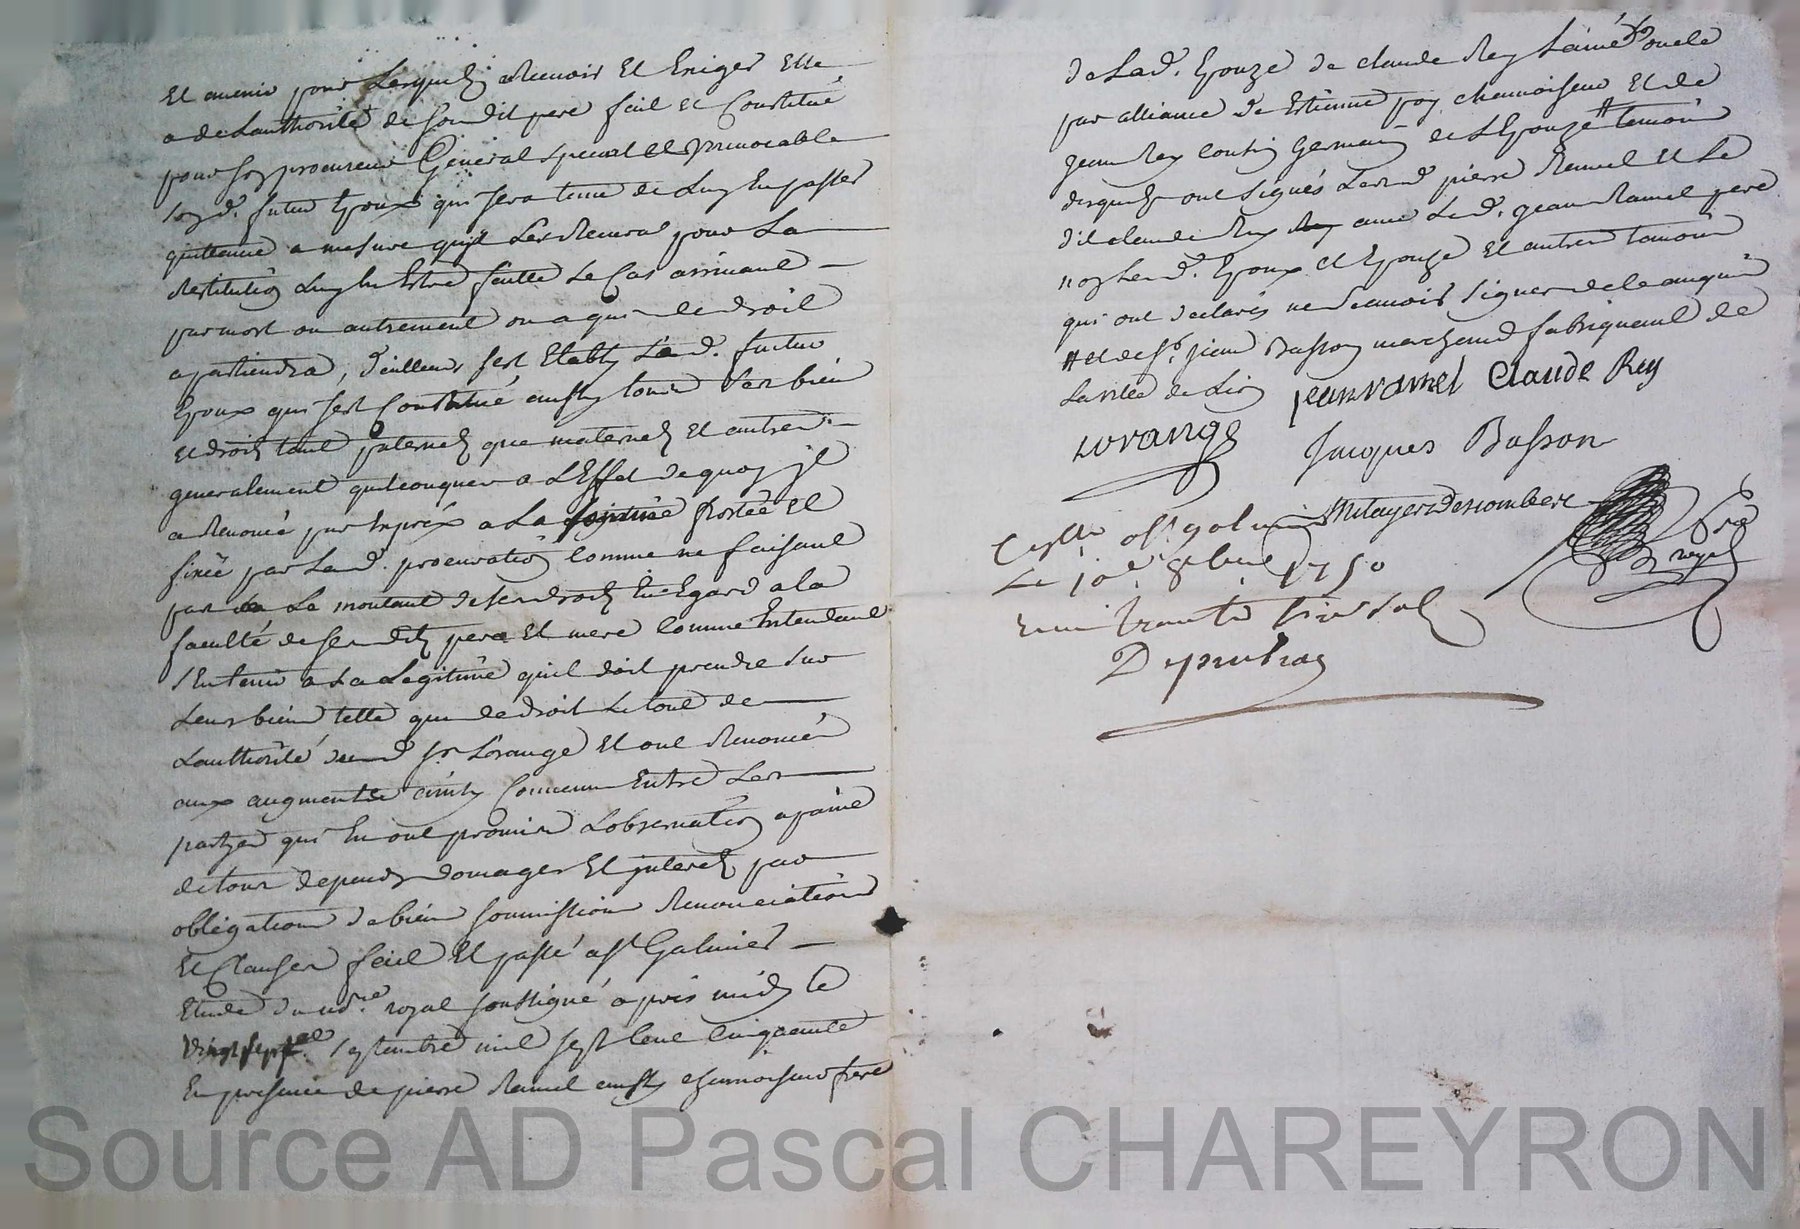 Et avenir pour Lesquels Recevoir Et Exiger Elle
a de Lauthorité de Son dit pere fait et Constitué
pour Son procureur General special et irrevocable
Sond. futur Epoux qui Sera tenu de Luy En passer
quittance a mesure quil Les Recevra pour La
Restitution Luy En Estre faitte Le Cas arrivant
par mort ou autrement ou a qui de droit
apartiendra, d'ailleurs sest Etably Led. futur
Epoux qui sest Constitué aussy tous Ses bien
et droits tant paternels que maternels et autres
generalement quelconques a L'Effet de quoy il
a Renoncé par Exprés a La portée et
fixée par Lad. procuration Comme ne faisant
pas Le montant de Ses droits En Egard a la
faculté de Ses dits pere Et mere Comme Entendant
S'En tenir a La Legitime quil doit prendre Sur
Leurs bien telle que de droit Le tout de
L'authorité dud. Sr Lorange Et ont Renoncé
aux augments ainsy Convenu Entre Les
partyes qui En ont promis L'observation a paine
de tous depends domages Et interets par
obligations de bien soumissions Renonciations
Et Clauses fait Et passé a St Galmier
Etude du nore royal soussigné apres midy le
vingt sept septembre mil sept Cent Cinquante
En presence de pierre Ramel aussy chamoiseur frere
de Lad. Epouze de claude Rey Lainé oncle
par alliance de Estienne chamoiseur Et de
Jean Rey Cousin Germain de L'Epouze # temoins
desquels ont Signés Lesd. pierre Ramel et Le
dit claude Rey avec Led. jean Ramel pere
non Lesd. Epoux et Epouze Et autres temoins
qui ont declarés ne Scavoir Signer de ce enquis
# et de Sr. Basson marchand fabriquant de
La ville de Lion jean ramel Claude Rey
Lorange Jacques Basson
Mitayer Descombere
Cllé a St galmier nore
Le 10e 8bre 1750 royal
Reçu trente Six Sols
Depruhas